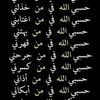 حسبي الله في من خذلني
حسبي الله في من اغتابني
حسبي الله في من بهتني
حسبي الله في من قهرني
حسبي الله في من جرحني
حسبي الله في من كسرني
حسبي الله في من آذاني
حسبي الله في من أبكاني